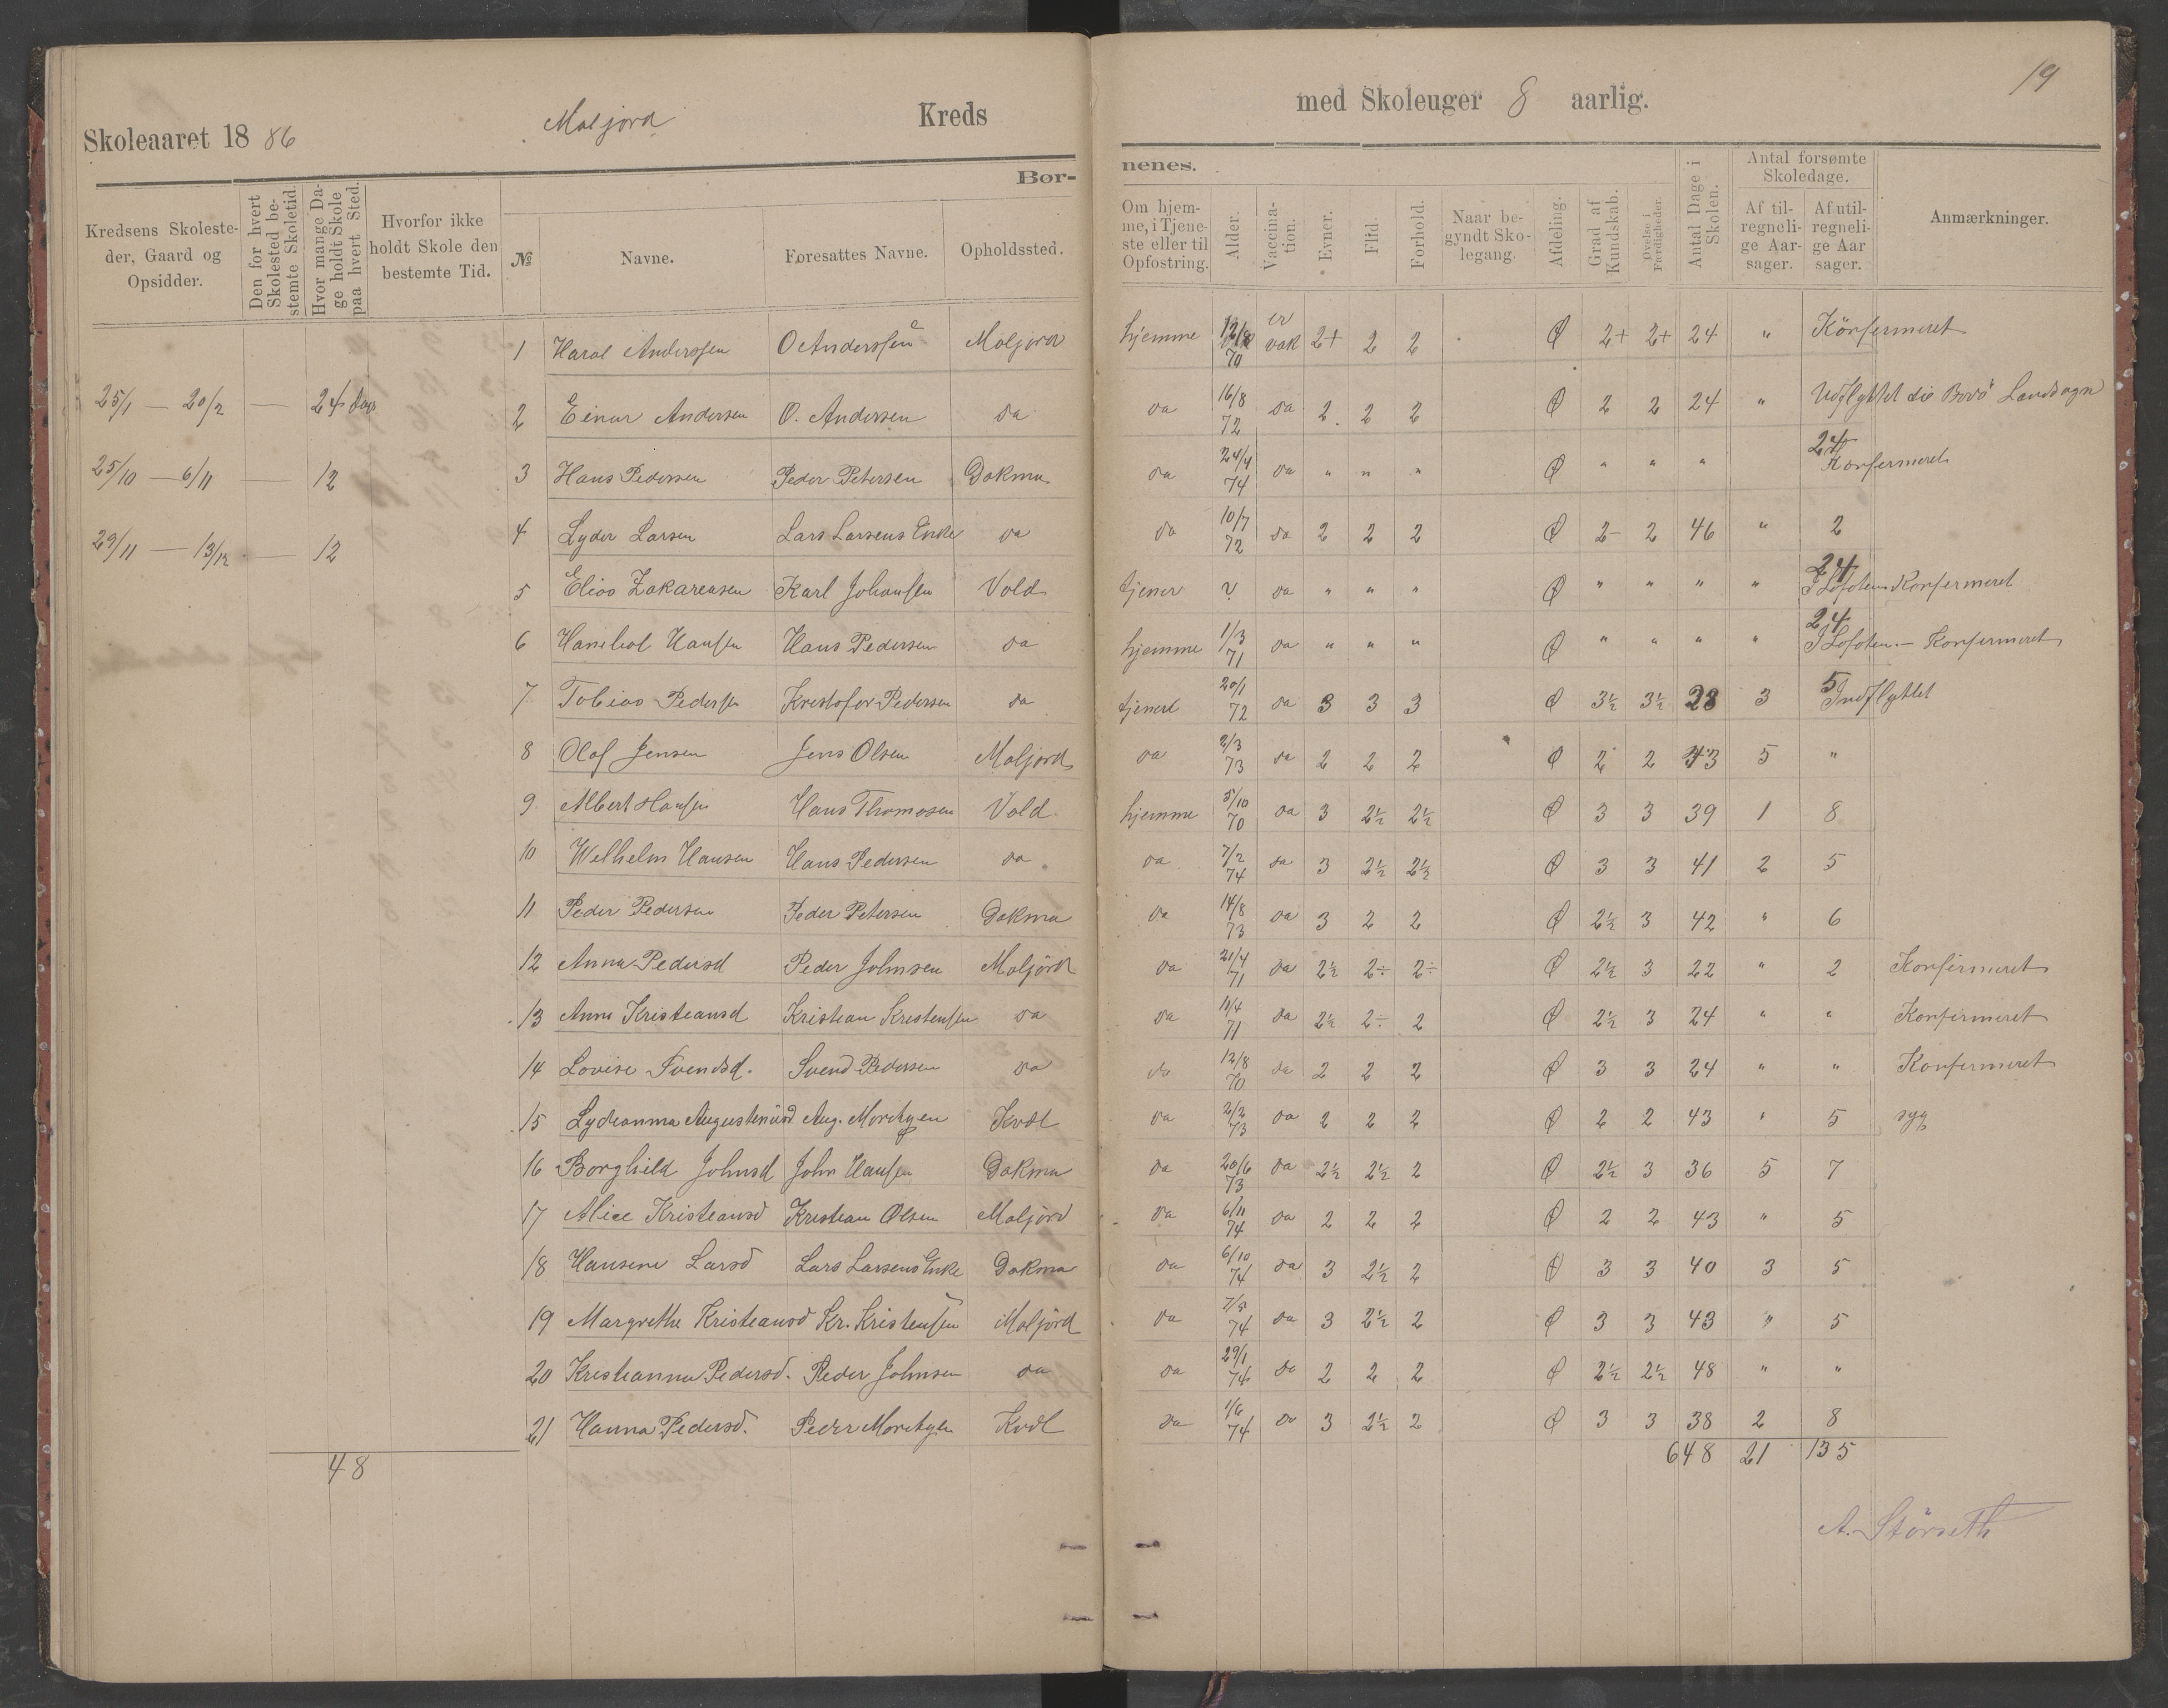 Skoleaaret 1886 Maljord Kreds med Skoleuger 8 aarlig. 19
Børnenes.
Kredsens Skolesteder, Gaard og Opsidder. Den for hvert Skolested bestemte Skoletid. Hvor mange Dage holdt Skole paa hvert Sted. Hvorfor ikke holdt Skole den bestemte Tid. № Navne. Foresattes Navne. Opholdssted. Om hjemme, i Tjeneste eller til Opfostring. Alder. Vaccination. Evner. Flid. Forhold. Naar begyndt Skolegang. Afdeling. Grad af Kundskab. Øvelse i Færdigheder. Antal Dage i Skolen. Antal forsømte Skoledage. Af tilregnelige Aarsager. Af utilregnelige Aarsager. Anmærkninger.
25/1 — 20/2 — 24 dage
25/10 — 6/11 — 12
29/11 — 13/12 — 12
1 Haral Anderssen O Anderssen Maljord hjemme 12/8 70 er vak 2+ 2 2 Ø 2+ 2+ 24 " Konfermeret
2 Einar Andersen O. Andersen da da 16/8 72 da 2 2 2 Ø 2 2 24 " Udflyttet Landsogn
3 Hans Pedersen Peder Petersen Dokmo da 24/4 74 da " " " Ø " " " 24 Konfermeret
4 Lyder Larsen Lars Larsens Enke da da 10/7 72 da 2 2 2 Ø 2- 2 46 " 2
5 Elias Zakareasen Karl Johansen Vold tjener ? da " " " Ø " " " " 24 I Lofoten Konfermeret
6 Hanibal Hansen Hans Pedersen da hjemme 1/3 71 da " " " Ø " " " " 24 I Lofoten — Konfermeret
7 Tobias Pedersen Kristofer Pedersen da tjener 20/1 72 da 3 3 3 Ø 3½ 3½ 28 3 5 Indflyttet
8 Olaf Jensen Jens Olsen Maljord da 2/3 73 da 2 2 2 Ø 2 2 43 5 "
9 Albert Hansen Hans Thomasen Vold hjemme 5/10 70 da 3 2½ 2½ Ø 3 3 39 1 8
10 Welhelm Hansen Hans Pedersen da da 7/2 74 da 3 2½ 2½ Ø 3 3 41 2 5
11 Peder Pedersen Peder Petersen Dokmo da 14/8 73 da 3 2 2 Ø 2½ 3 42 " 6
12 Anna Pedersd Peder Johnsen Maljord da 21/4 71 da 2½ 2÷ 2÷ Ø 2½ 3 22 " 2 Konfirmeret
13 Anne Kristeansd Kristean Kristensen da da 11/4 71 da 2½ 2÷ 2 Ø 2½ 3 24 " " Konfermeret
14 Lovise Svendsd. Svend Pedersen da da 12/8 70 da 2 2 2 Ø 3 3 24 " " Konfermeret
15 Lydeanna Augustinusd Aug. Moritzen Kvål da 2/2 73 da 2 2 2 Ø 2 2 43 " 5 syg
16 Borghild Johnsd John Hansen Dokmo da 20/6 73 da 2½ 2½ 2 Ø 2½ 3 36 5 7
17 Alice Kristeansd Kristean Olsen Maljord da 6/11 74 da 2 2 2 Ø 2 2 43 " 5
18 Hansine Larsd Lars Larsens Enke Dokmo da 6/10 74 da 3 2½ 2 Ø 3 3 40 3 5
19 Margrethe Kristeansd Kr. Kristensen Maljord da 7/5 74 da 3 2½ 2 Ø 3 3 43 " 5
20 Kristianna Pedersd. Peder Johnsen da da 29/1 74 da 2 2 2 Ø 2½ 2½ 48 " "
21 Hanna Pedersd. Peder Moritzen Kvål da 1/6 74 da 3 2½ 2 Ø 3 3 38 2 8
48 648 21 135
A. Störseth